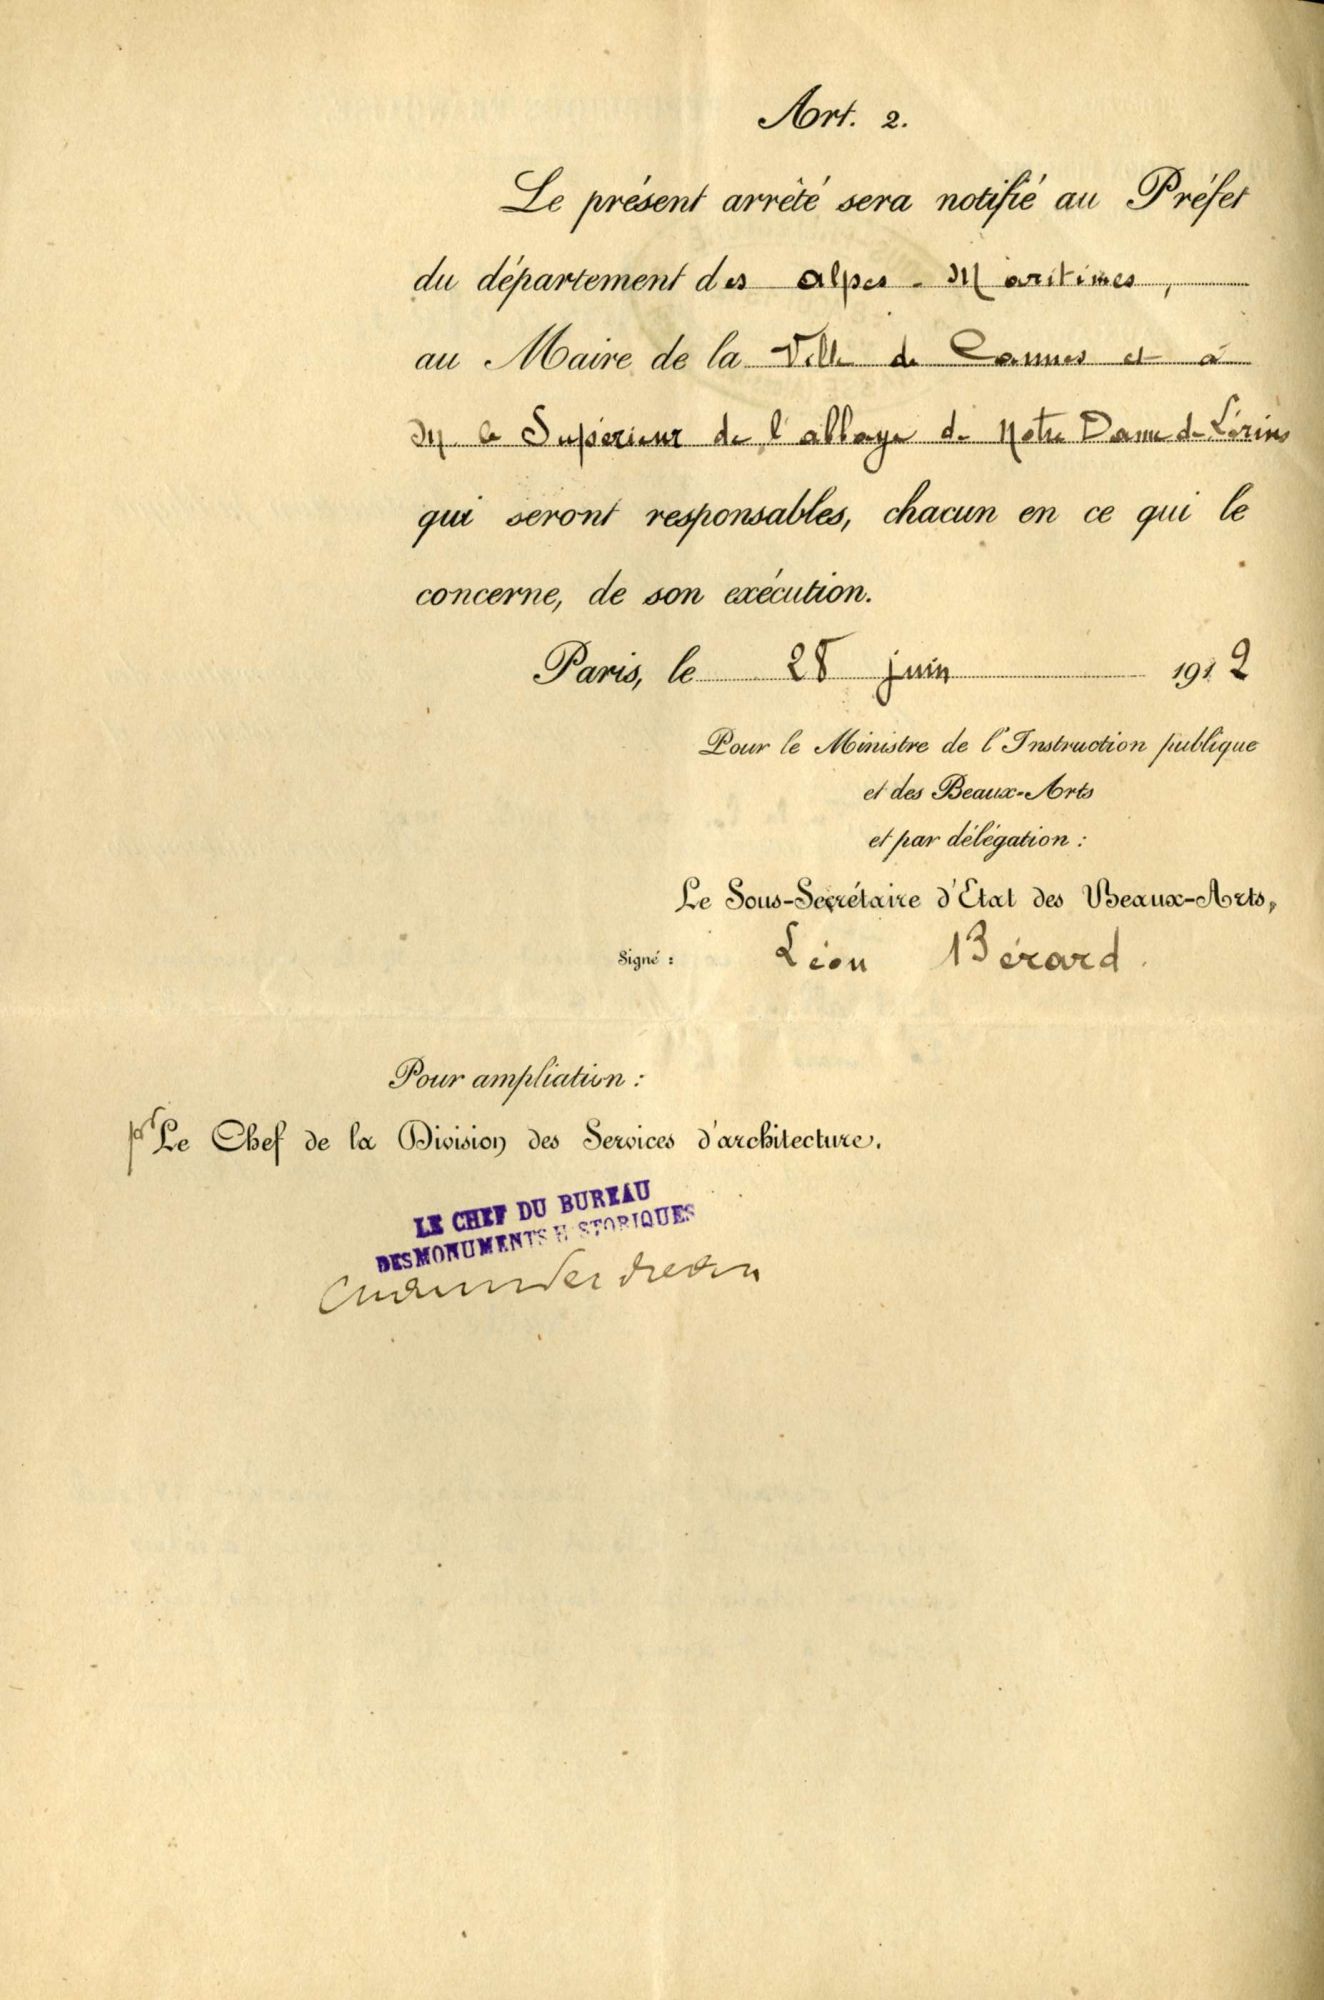 Art. 2.
Le présent arrêté sera notifié au Préfet
du département des Alpes-Maritimes,
au Maire de la Ville de Cannes et à
M le Supérieur de l'abbaye de Notre Dame de Lérins
qui seront responsables, chacun en ce qui le
concerne, de son exécution.
Paris, le 28 juin 1912
Pour le Ministre de l'Instruction publique
et des Beaux-Arts
et par délégation :
Le Sous-Secrétaire d'Etat des Beaux-Arts,
Signé : Léon Bérard.
Pour ampliation :
pr Le Chef de la Division des Services d'architecture.
LE CHEF DU BUREAU
DES MONUMENTS HISTORIQUES